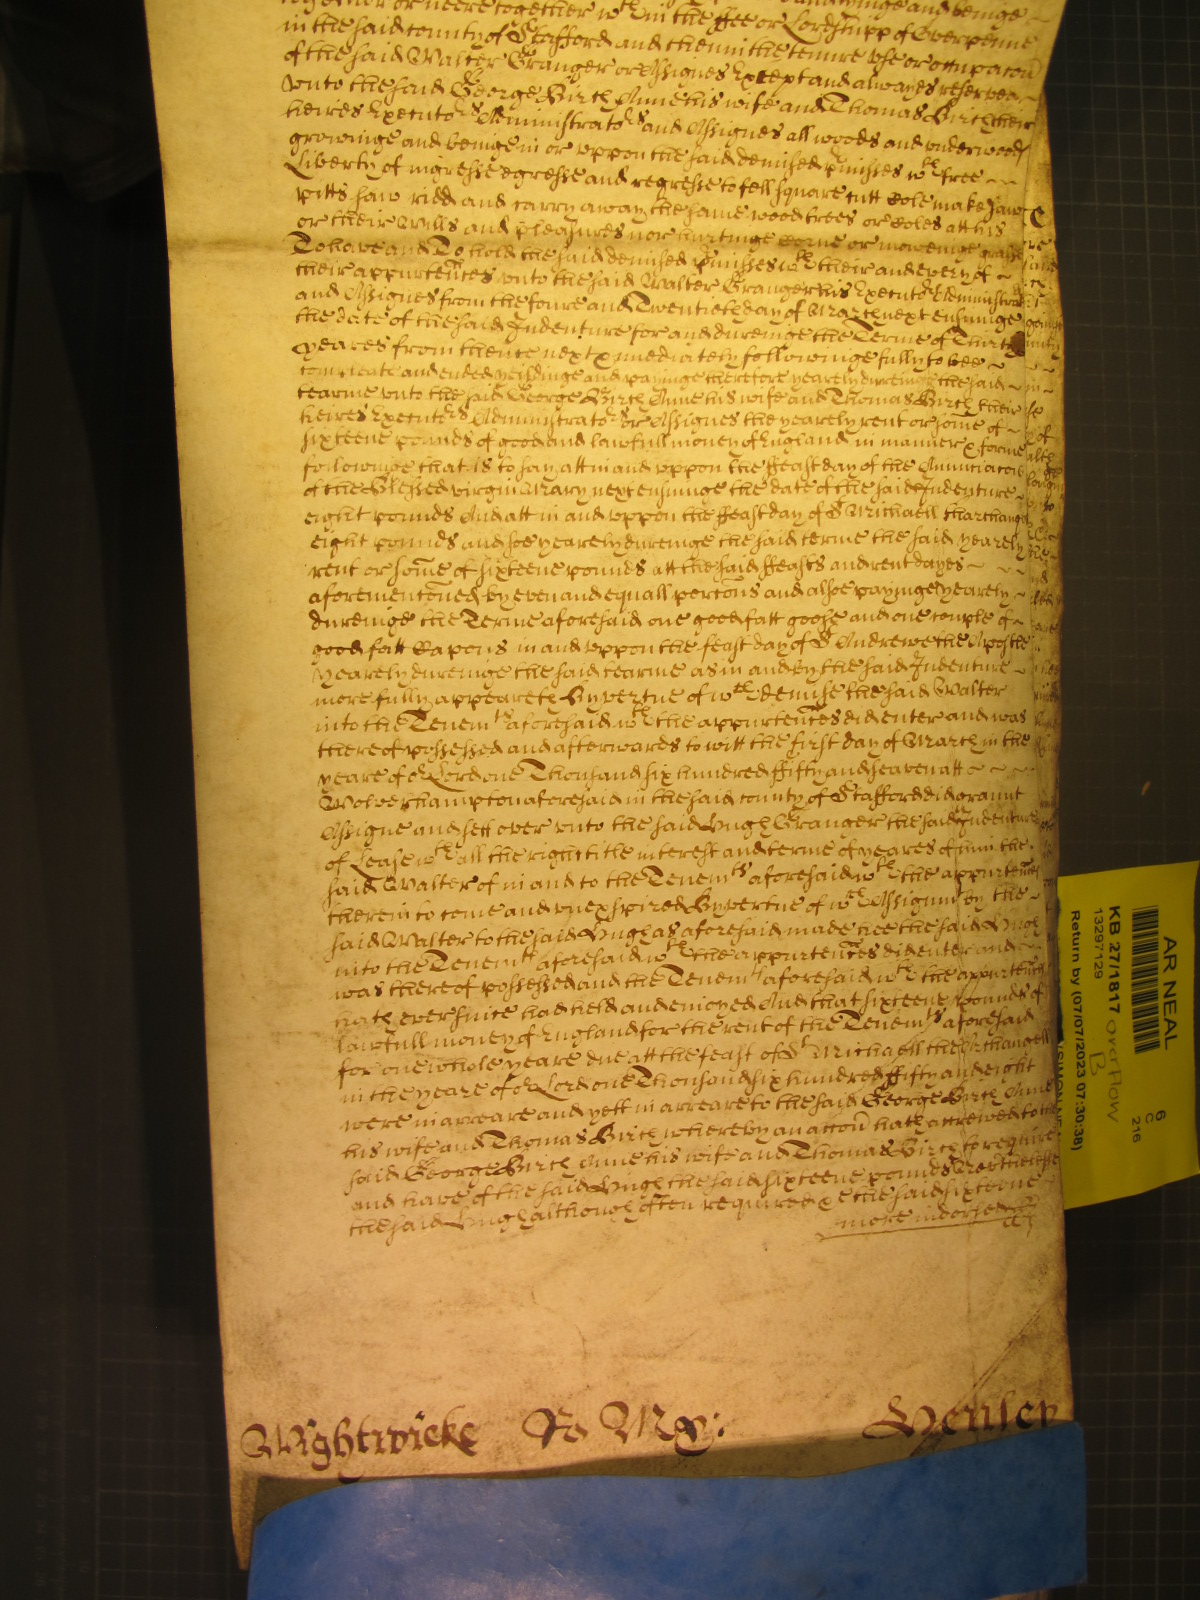 together or neere together wth in the ffee or Lordshipp of Overpenne
in the said county of Stafford and then in the tenure use or occupacon
of the said Walter Granger or Assignes Except and alwayes reserved
unto the said George Birch Anne his wife and Thomas Birch their
heires Executors Administrators and Assignes all woods and underwoods
growinge and beinge in or uppon the said demised pmisses wth free
Liberty of ingresse egresse and regresse to fell square cutt Cole make saw
pitts saw ridd and carry away the same wood trees or Coles att his
or their Wills and pleasures nor hurtinge Corne or moweinge grasse
To have and To hold the said demised pmisses wth their and every of
their appurtences unto the said Walter Granger his Executors Administrators
and Assignes from the foure and Twentieth day of March next ensuinge
the date of the said Indenture for and dureinge the Terme of Thirty
yeares from thence next ymediately followinge fully to bee
compleate and ended yeildinge and payinge therefore yearely dureinge the said
tearme unto the said George Birch Anne his wife and Thomas Birch their
heires Executors Administrators or Assignes the yearely rent or some of
sixteene pounds of good and lawfull money of England in manner & forme
followinge that is to say att in and uppon the ffeast day of the Annunciacon
of the Blessed virgin Mary next ensuinge the date of the said Indenture
eight pounds And att in and uppon the ffeast day of St Michaell tharchangell
eight pounds and soe yearely dureinge the said terme the said yearely
rent or some of sixteene pounds att the said ffeasts and rent dayes
aforementoned by even and equall portons and alsoe payinge yearely
dureinge the Terme aforesaid one good fatt goose and one couple of
good fatt Capons in and uppon the feast day of St Andrewe the Apostle
yearely dureinge the said tearme as in and by the said Indenture
more fully appeareth By vertue of wch demise the said Walter
into the Tenemts aforesaid wth the appurtences did enter and was
thereof possessed and afterwards to witt the first day of March in the
yeare of or Lord one Thousand six hundred ffifty and seaven att
Wolverhampton aforesaid in the said county of Stafford did graunt
Assigne and sett over unto the said Hugh Granger the said Indenture
of Lease wth all the right title interest and terme of yeares of him the
said Walter of in and to the Tenemts aforesaid wth the appurtences
therein to come and unexpired By vertue of wch Assignmt by the
said Walter to the said Hugh as aforesaid made hee the said Hugh
into the Tenemts aforesaid wth the appurtences did enter and
was thereof possessed and the Tenemts aforesaid wth the appurtences
hath ever since had held and enioyed And that sixteene pounds of
lawfull money of England for the rent of the Tenemts aforesaid
for one whole yeare due att the feast of St Michaell the Archangell
in the yeare of or Lord one Thousand six hundred ffifty and eight
were in arreare and yett in arreare to the said George Birch Anne
his wife and Thomas Birch whereby an accon hath accrewed to the
said George Birch Anne his wife and Thomas Birch to require
and have of the said Hugh the said sixteene pounds Neverthelesse
the said Hugh although often required &c the said sixteene
more indorsed
Wightwicke Ro Mx: Henley
AR NEAL
6
C
216
KB 27/1817 overflow
B
13297129
Return by (07/07/2023 07:30:38)